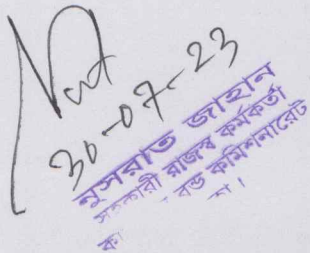 30-07-23
নুসরাত জাহান
সহকারী রাজস্ব কর্মকর্তা
বন্ড কমিশনারেট